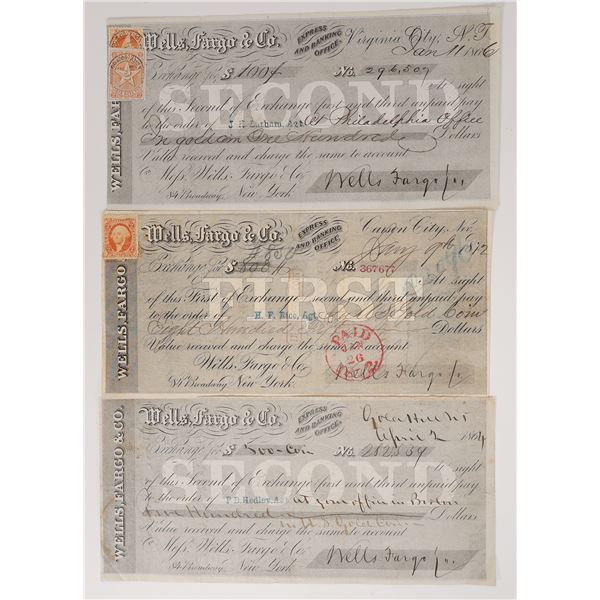 Wells, Fargo & Co. EXPRESS AND BANKING OFFICE. Virginia City, N.T.
Jan 11 1866
Exchange for $100# No. 296,507
At sight
of this Second of Exchange first and third unpaid pay
to the order of J. H. Latham, Agt. At Philadelphia Office
In gold coin One Hundred Dollars
Value received and charge the same to account
To Messrs. Wells Fargo & Co.
84 Broadway, New York Wells Fargo & Co.
SECOND
WELLS, FARGO
Wells, Fargo & Co. EXPRESS AND BANKING OFFICE. Carson City, Nev.
Jany 9th 1872
Exchange for $ No. 367677
At sight
of this First of Exchange second and third unpaid pay
to the order of H. F. Rice, Agt. Gold Coin
Eight Hundred Dollars
Value received and charge the same to account
PAID
26
Wells Fargo & Co.
84 Broadway New York Wells Fargo & Co.
FIRST
WELLS, FARGO
Wells, Fargo & Co. EXPRESS AND BANKING OFFICE. Gold Hill N.T.
April 2 1864
Exchange for $ 500 - Coin No. 282834
At sight
of this Second of Exchange first and third unpaid pay
to the order of P. D. Hedley, Agt. at your office in Boston
Five Hundred Dollars
in U.S. Gold Coin
Value received and charge the same to account
To Messrs. Wells Fargo & Co.
84 Broadway, New York Wells Fargo & Co.
SECOND
WELLS, FARGO & CO.